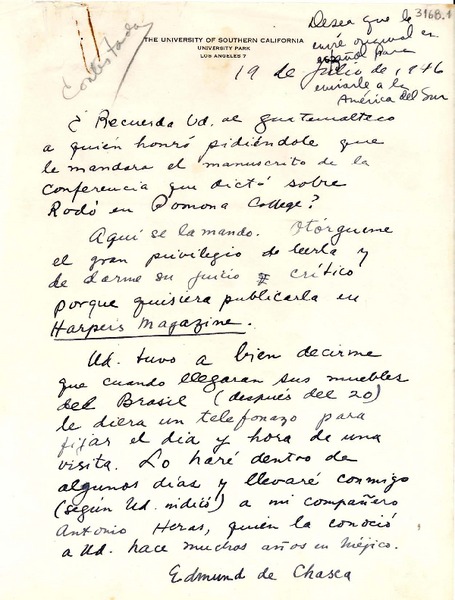 3168.1
Desea que le
envié original en
español para
enviarle a la
América del Sur
Contestada
THE UNIVERSITY OF SOUTHERN CALIFORNIA
UNIVERSITY PARK
LOS ANGELES 7
19 de Julio de 1946
¿ Recuerda Ud. al guatemalteco
a quién honró pidiéndole que
le mandara el manuscrito de la
conferencia que dictó sobre
Rodó en Pomona College?
Aquí se la mando. Otórgueme
el gran privilegio de leerla y
de darme su juicio crítico
porque quisiera publicarla en
Harpers Magazine.
Ud. tuvo a bien decirme
que cuando llegaran sus muebles
del Brasil (después del 20)
le diera un telefonazo para
fijar el día y hora de una
visita. Lo haré dentro de
algunos días y llevaré conmigo
(según Ud. indicó) a mi compañero
Antonio Heras, quien la conoció
a Ud. hace muchos años en Méjico.
Edmund de Chasca